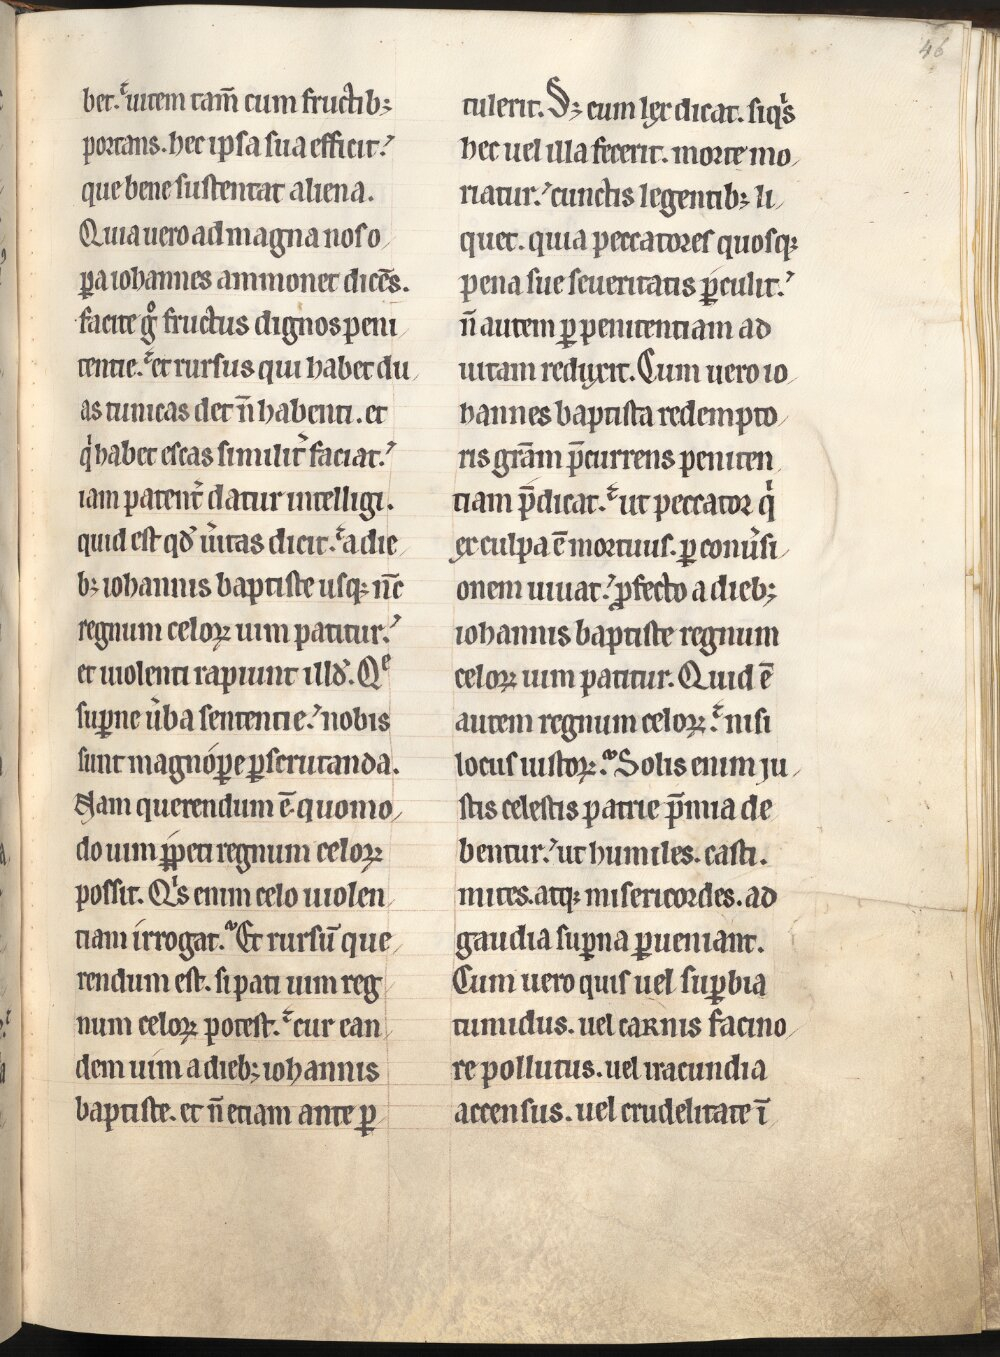 46
bet. uitem tam̄ cum fructib;
portans. hec ipsa sua efficit.
que bene sustentat aliena.
Quia uero ad magna nos o
ꝑa iohannes ammonet dicēs.
facite gͦ fructus dignos peni
tentie. et rursus qui habet du
as tunicas det n̄ habenti. et
qⁱ habet escas similit̉ faciat.
iam patent̉ datur intelligi.
quid est qd̉ ủitas dicit. a die
b; iohannis baptiste usq; nc̄
regnum celoꝝ uim patitur.
et uiolenti rapiunt illd̉. Qᵉ
suꝑne ủba sententie. nobis
sunt magnopꝑe ꝑscrutanda.
Nam querendum ē. quomo
do uim ꝑpeti regnum celoꝝ
possit. Qⁱs enim celo uiolen
tiam irrogat. Et rursū que
rendum est. si pati uim reg
num celoꝝ potest. cur ean
dem uim a dieb; iohannis
baptiste. et n̄ etiam ante ꝑ
tulerit. S; cum lex dicat. siqⁱs
hec uel illa fecerit. morte mo
riatur. cunctis legentib; li
quet. quia peccatores quosq;
pena sue seueritatis ꝑculit.
n̄ autem ꝑ penitentiam ad
uitam reduxit. Cum uero io
hannes baptista redempto
ris grām p̄currens peniten
tiam p̄dicat. ut peccator qⁱ
ex culpa ē mortuus. ꝑ conủsi
onem uiuat. ꝓfecto a dieb;
iohannis baptiste regnum
celoꝝ uim patitur. Quid ē
autem regnum celoꝝ. nisi
locus iustoꝝ. Solis enim iu
stis celestis patrie p̄mia de
bentur. ut humiles. casti.
mites. atq; misericordes. ad
gaudia suꝑna ꝑueniant.
Cum uero quis uel suꝑbia
tumidus. uel carnis facino
re pollutus. uel iracundia
accensus. uel crudelitate ī